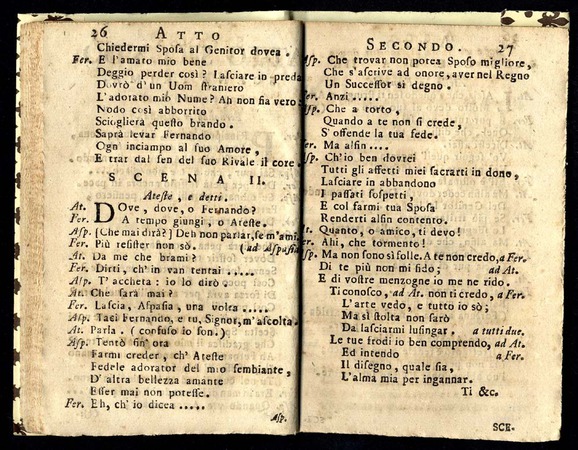 26 ATTO
Chiedermi Sposa al Genitor dovea.
Fer. E l'amato mio bene
Deggio perder così? Lasciare in preda
Dovrò d'un Uom straniero
L'adorato mio Nume? Ah non sia vero:
Nodo così abborrito
Sciogliera questo brando.
Saprà levar Fernando
Ogn inciampo al suo Amore,
E trar dal sen del suo Rivale il core.
SCENA II.
Ateste, e detti.
At. Dove, dove, o Fernando?
Fer. A tempo giungi, o Ateste.
Asp. (Che mai dirà?) Deh non parlar, se m'ami.
Fer. Più resister non sò. (ad Aspasia
At. Da me che brami?
Fer. Dirti, ch'in van tentai .....
Asp. T'accheta: io lo dirò.
At. Che sarà mai?
Fer. Lascia, Aspasia, una volta .....
Asp. Taci Fernando, e tu, Signor, m'ascolta.
At. Parla. (confuso io son.)
Asp. Tentò fin'ora
Farmi creder, ch'Ateste
Fedele adorator del mio sembiante,
D'altra bellezza amante
Esser mai non potesse.
Fer. Eh, ch'io dicea .....
Asp.
SECONDO. 27
Asp. Che trovar non potea Sposo migliore,
Che s'ascrive ad onore, aver nel Regno
Un Successor sì degno.
Fer. Anzi .....
Asp. Che a torto,
Quando a te non si crede,
S'offende la tua fede.
Fer. Ma alfin ....
Asp. Ch'io ben dovrei
Tutti gli affetti miei sacrarti in dono,
Lasciare in abbandono
I passati sospetti,
E col farmi tua Sposa
Renderti alfin contento.
At. Quanto, o amico, ti devo!
Fer. Ahi, che tormento!
Asp. Ma non sono sì folle. A te non credo, a Fer.
Di te più non mi fido; ad At.
E di vostre menzogne io me ne rido.
Ti conosco, ad At. non ti credo, a Fer.
L'arte vedo, e tutto io sò;
Ma sì stolta non sarò
Da lasciarmi lusingar. a tutti due.
Le tue frodi io ben comprendo, ad At.
Ed intendo a Fer.
Il disegno, quale sia,
L'alma mia per ingannar.
Ti &c.
SCE-